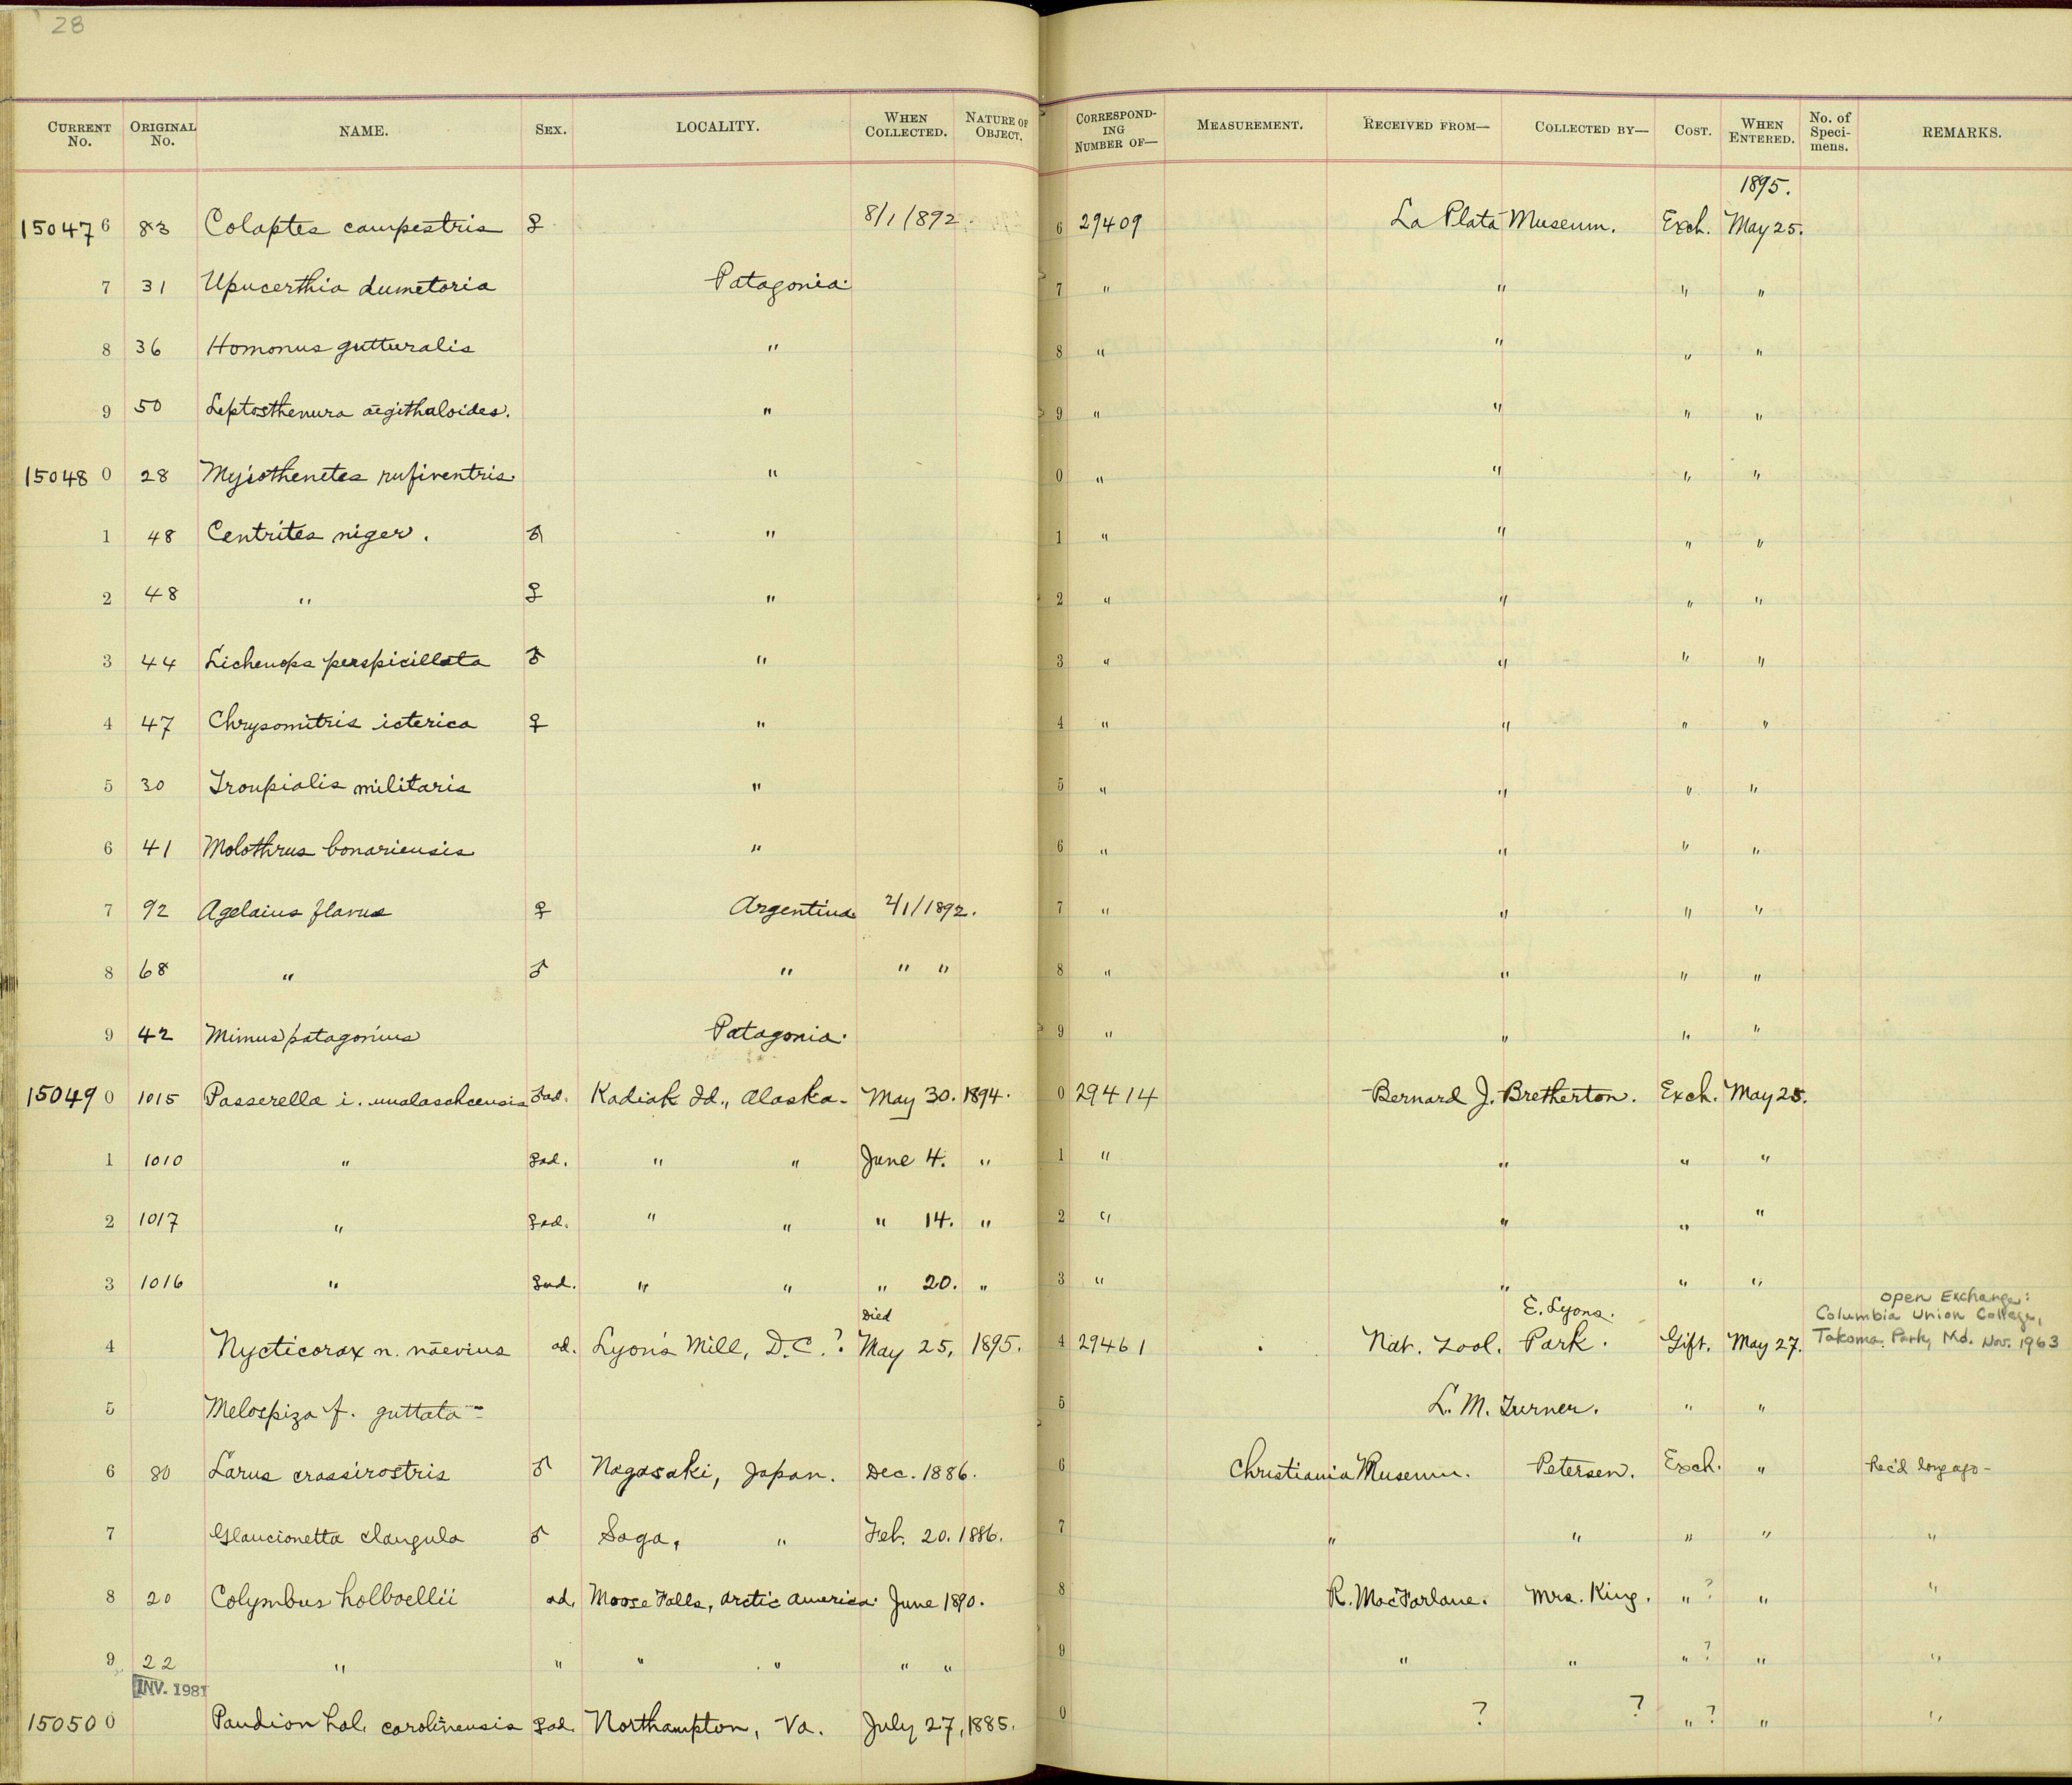 28
CURRENT No. ORIGINAL No. NAME. SEX. LOCALITY. WHEN COLLECTED. NATURE OF OBJECT. CORRESPONDING NUMBER OF— MEASUREMENT. RECEIVED FROM— COLLECTED BY— COST. WHEN ENTERED. No. of Specimens. REMARKS.
1895.
15047 6 83 Colaptes campestris ♀ 8/1/892. 6 29409 La Plata Museum. Exch. May 25.
7 31 Upucerthia dumetoria Patagonia. 7 " " " "
8 36 Homonus gutturalis " 8 " " " "
9 50 Leptosthenura ægithaloides. " 9 " " " "
15048 0 28 Myiothenetes rufiventris. " 0 " " " "
1 48 Centrites niger. ♂ " 1 " " " "
2 48 " ♀ " 2 " " " "
3 44 Lichenops perspicillata ♂ " 3 " " " "
4 47 Chrysomitris icterica ♀ " 4 " " " "
5 30 Troupialis militaris " 5 " " " "
6 41 Molothrus bonariensis " 6 " " " "
7 92 Agelaius flavus ♀ Argentina 2/1/1892. 7 " " " "
8 68 " ♂ " " " 8 " " " "
9 42 Mimus patagonius Patagonia. 9 " " " "
15049 0 1015 Passerella i. unalaschcensis ♂ad. Kadiak Id., Alaska. May 30. 1894. 0 29414 Bernard J. Bretherton. Exch. May 25.
1 1010 " ♀ad. " " June 4. " 1 " " " "
2 1017 " ♀ad. " " " 14. " 2 " " " "
3 1016 " ♀ad. " " " 20. " 3 " " " "
Died E. Lyons. Open Exchange:
Columbia Union College,
4 Nycticorax n. nævius ad. Lyon's Mill, D.C.? May 25, 1895. 4 29461 Nat. Zool. Park. Gift. May 27. Takoma Park, Md. Nov. 1963
5 Melospiza f. guttata 5 L. M. Turner. " "
6 80 Larus crassirostris ♂ Nagasaki, Japan. Dec. 1886. 6 Christiania Museum. Petersen. Exch. " Rec'd long ago-
7 Glaucionetta clangula ♂ Saga, " Feb. 20. 1886. 7 " " " " "
8 20 Colymbus holboellii ad. Moose Falls, Arctic America. June 1890. 8 R. MacFarlane. Mrs. King. " ? " "
9 22 " " " " " " 9 " " " ? " "
INV. 1981
15050 0 Pandion hal. carolinensis ♀ad. Northampton, Va. July 27, 1885. 0 ? ? " ? " "